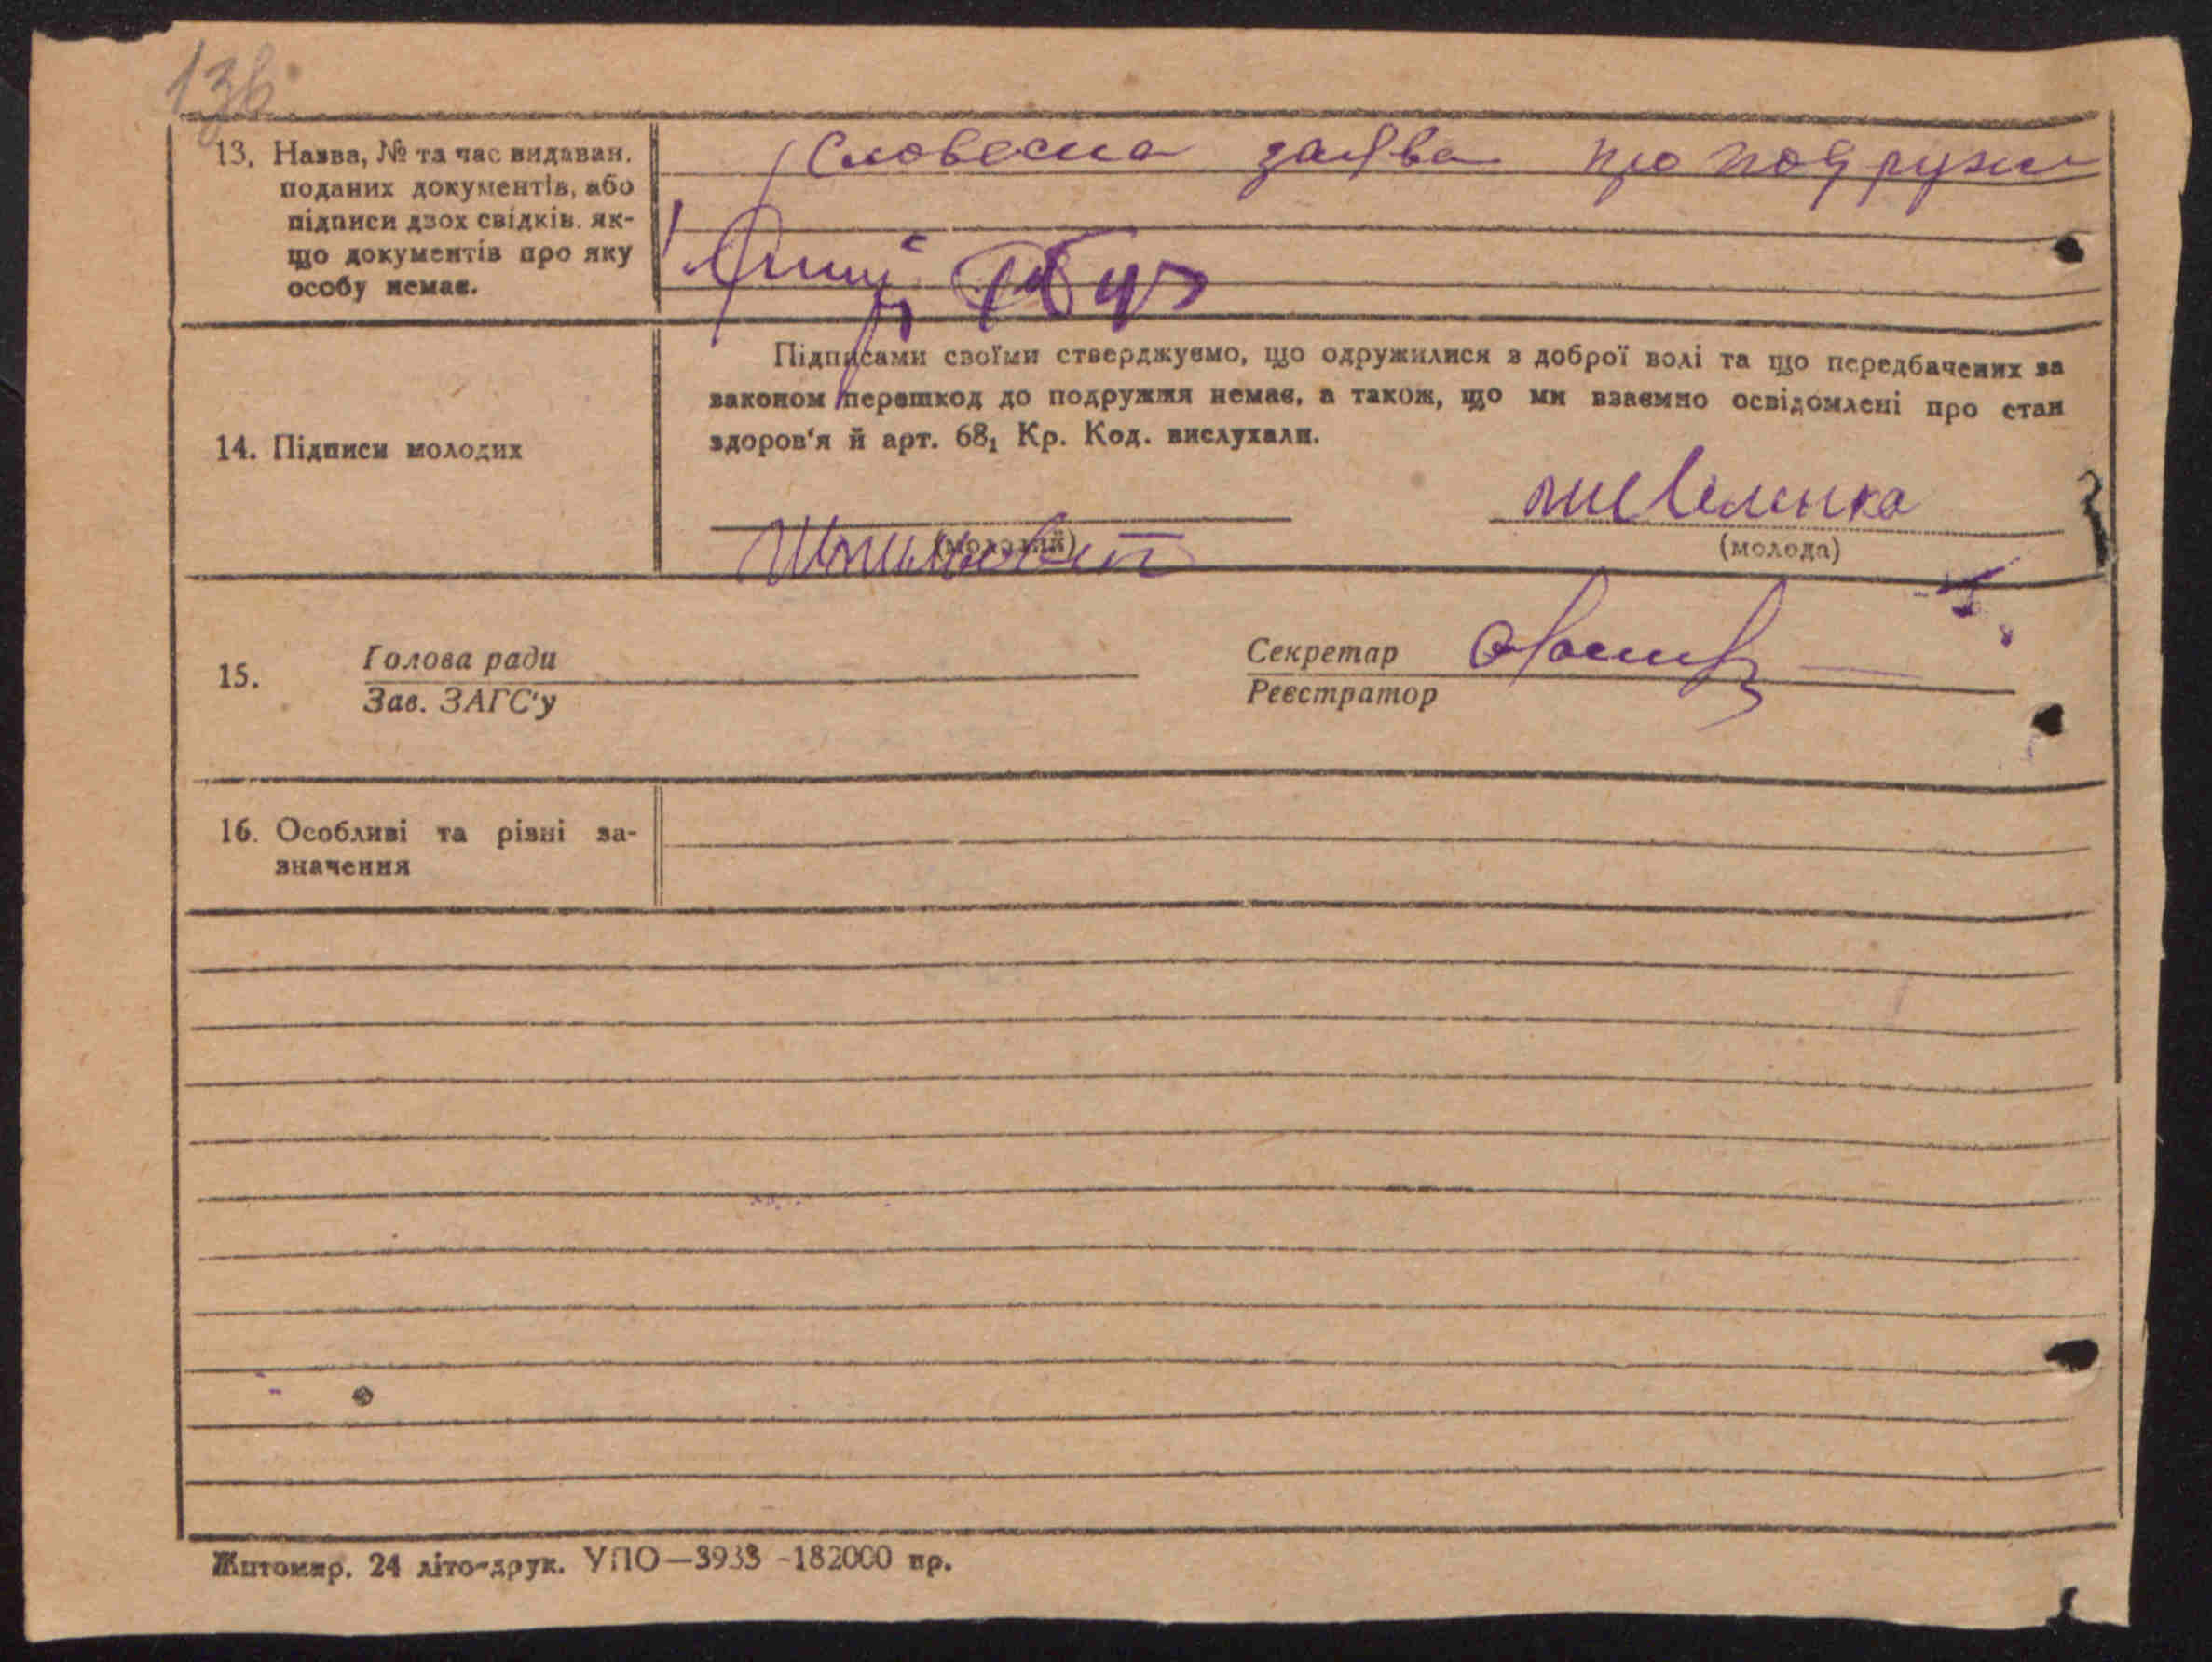 13. Назва, № та час видаван.
поданих документів, або
підписи двох свідків. як-
що документів про яку
особу немає.
Словесна заява про подружж
14. Підписи молодих
Підписами своїми стверджуємо, що одружилися з доброї волі та що передбачених за
законом перешкод до подружжя немає, а також, що ми взаємно освідомлені про стан
здоров'я й арт. 68₁ Кр. Код. вислухали.
(молодий)
(молода)
15.
Голова ради
Зав. ЗАГС'у
Секретар
Реєстратор
16. Особливі та різні за-
значення
Житомир. 24 літо-друк. УПО—3933 -182000 пр.